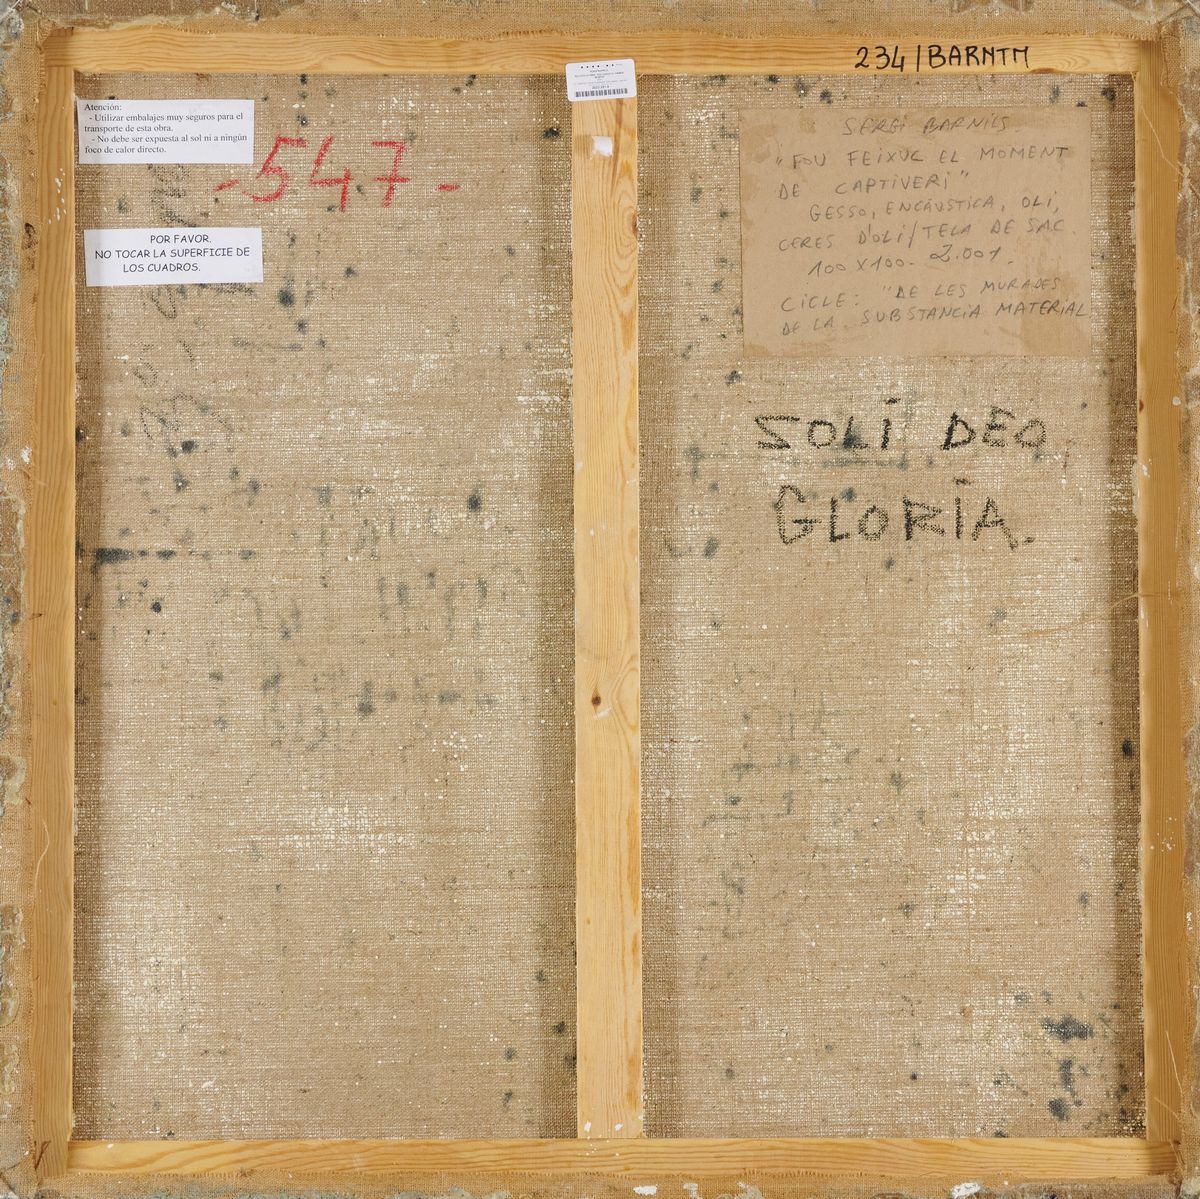 234/BARNTM
Atención:
- Utilizar embalajes muy seguros para el
transporte de esta obra.
- No debe ser expuesta al sol ni a ningún
foco de calor directo.
-547-
POR FAVOR.
NO TOCAR LA SUPERFICIE DE
LOS CUADROS.
SERGI BARNILS
"FOU FEIXUC EL MOMENT
DE CAPTIVERI"
GESSO, ENCÀUSTICA, OLI,
CERES D'OLI/TELA DE SAC
100 X 100 - 2.001.
CICLE: "DE LES MURADES
DE LA SUBSTANCIA MATERIAL
SOLI DEO
GLORIA.